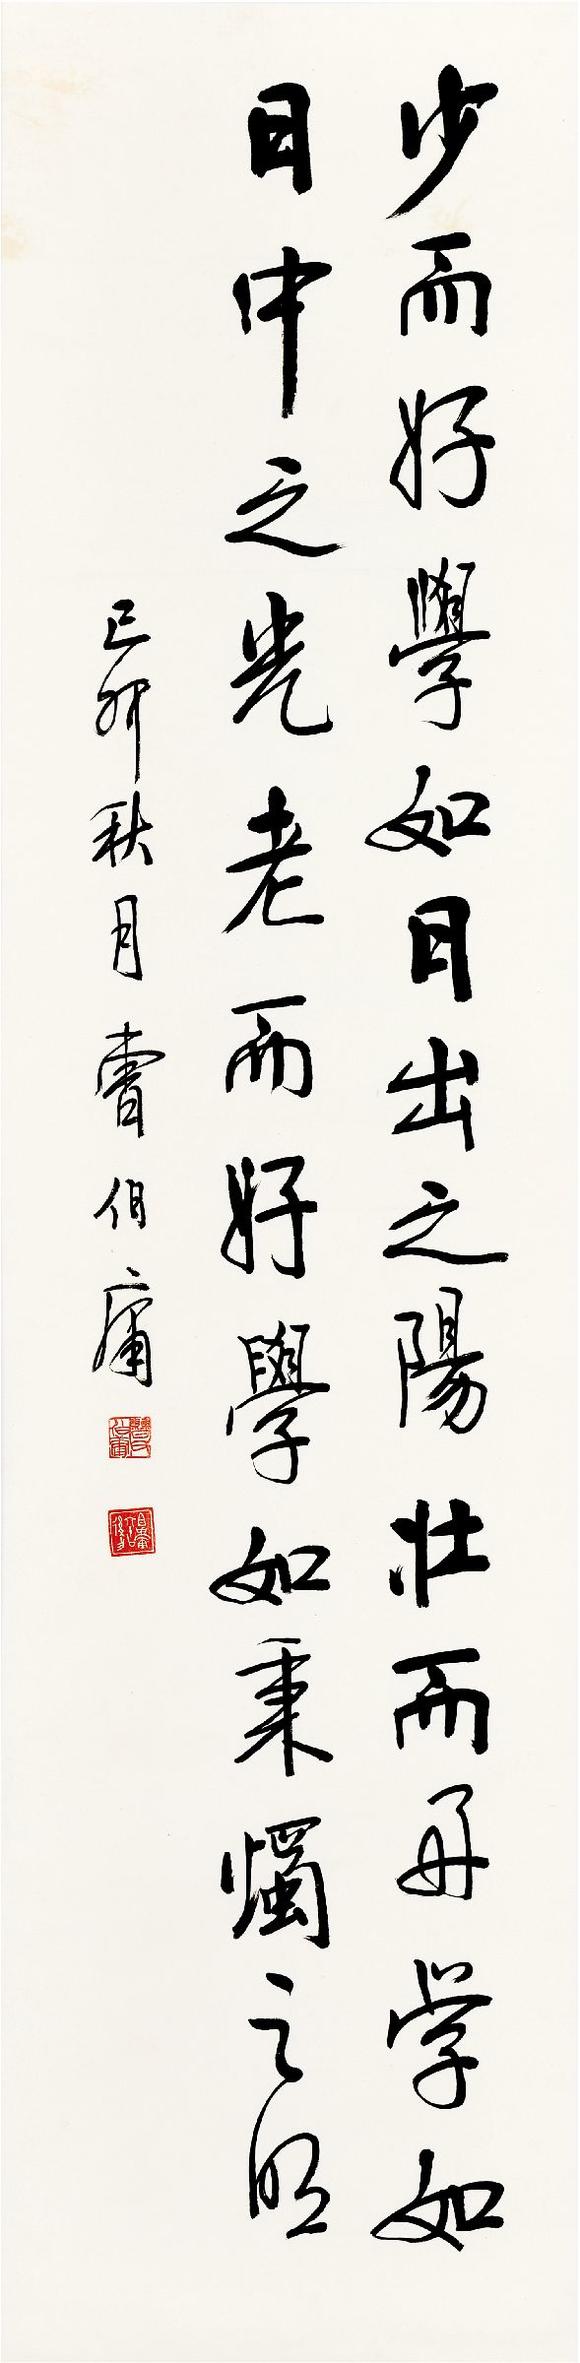 少而好學如日出之陽壮而好学如
日中之光老而好學如秉燭之明
己卯秋月曹伯庸